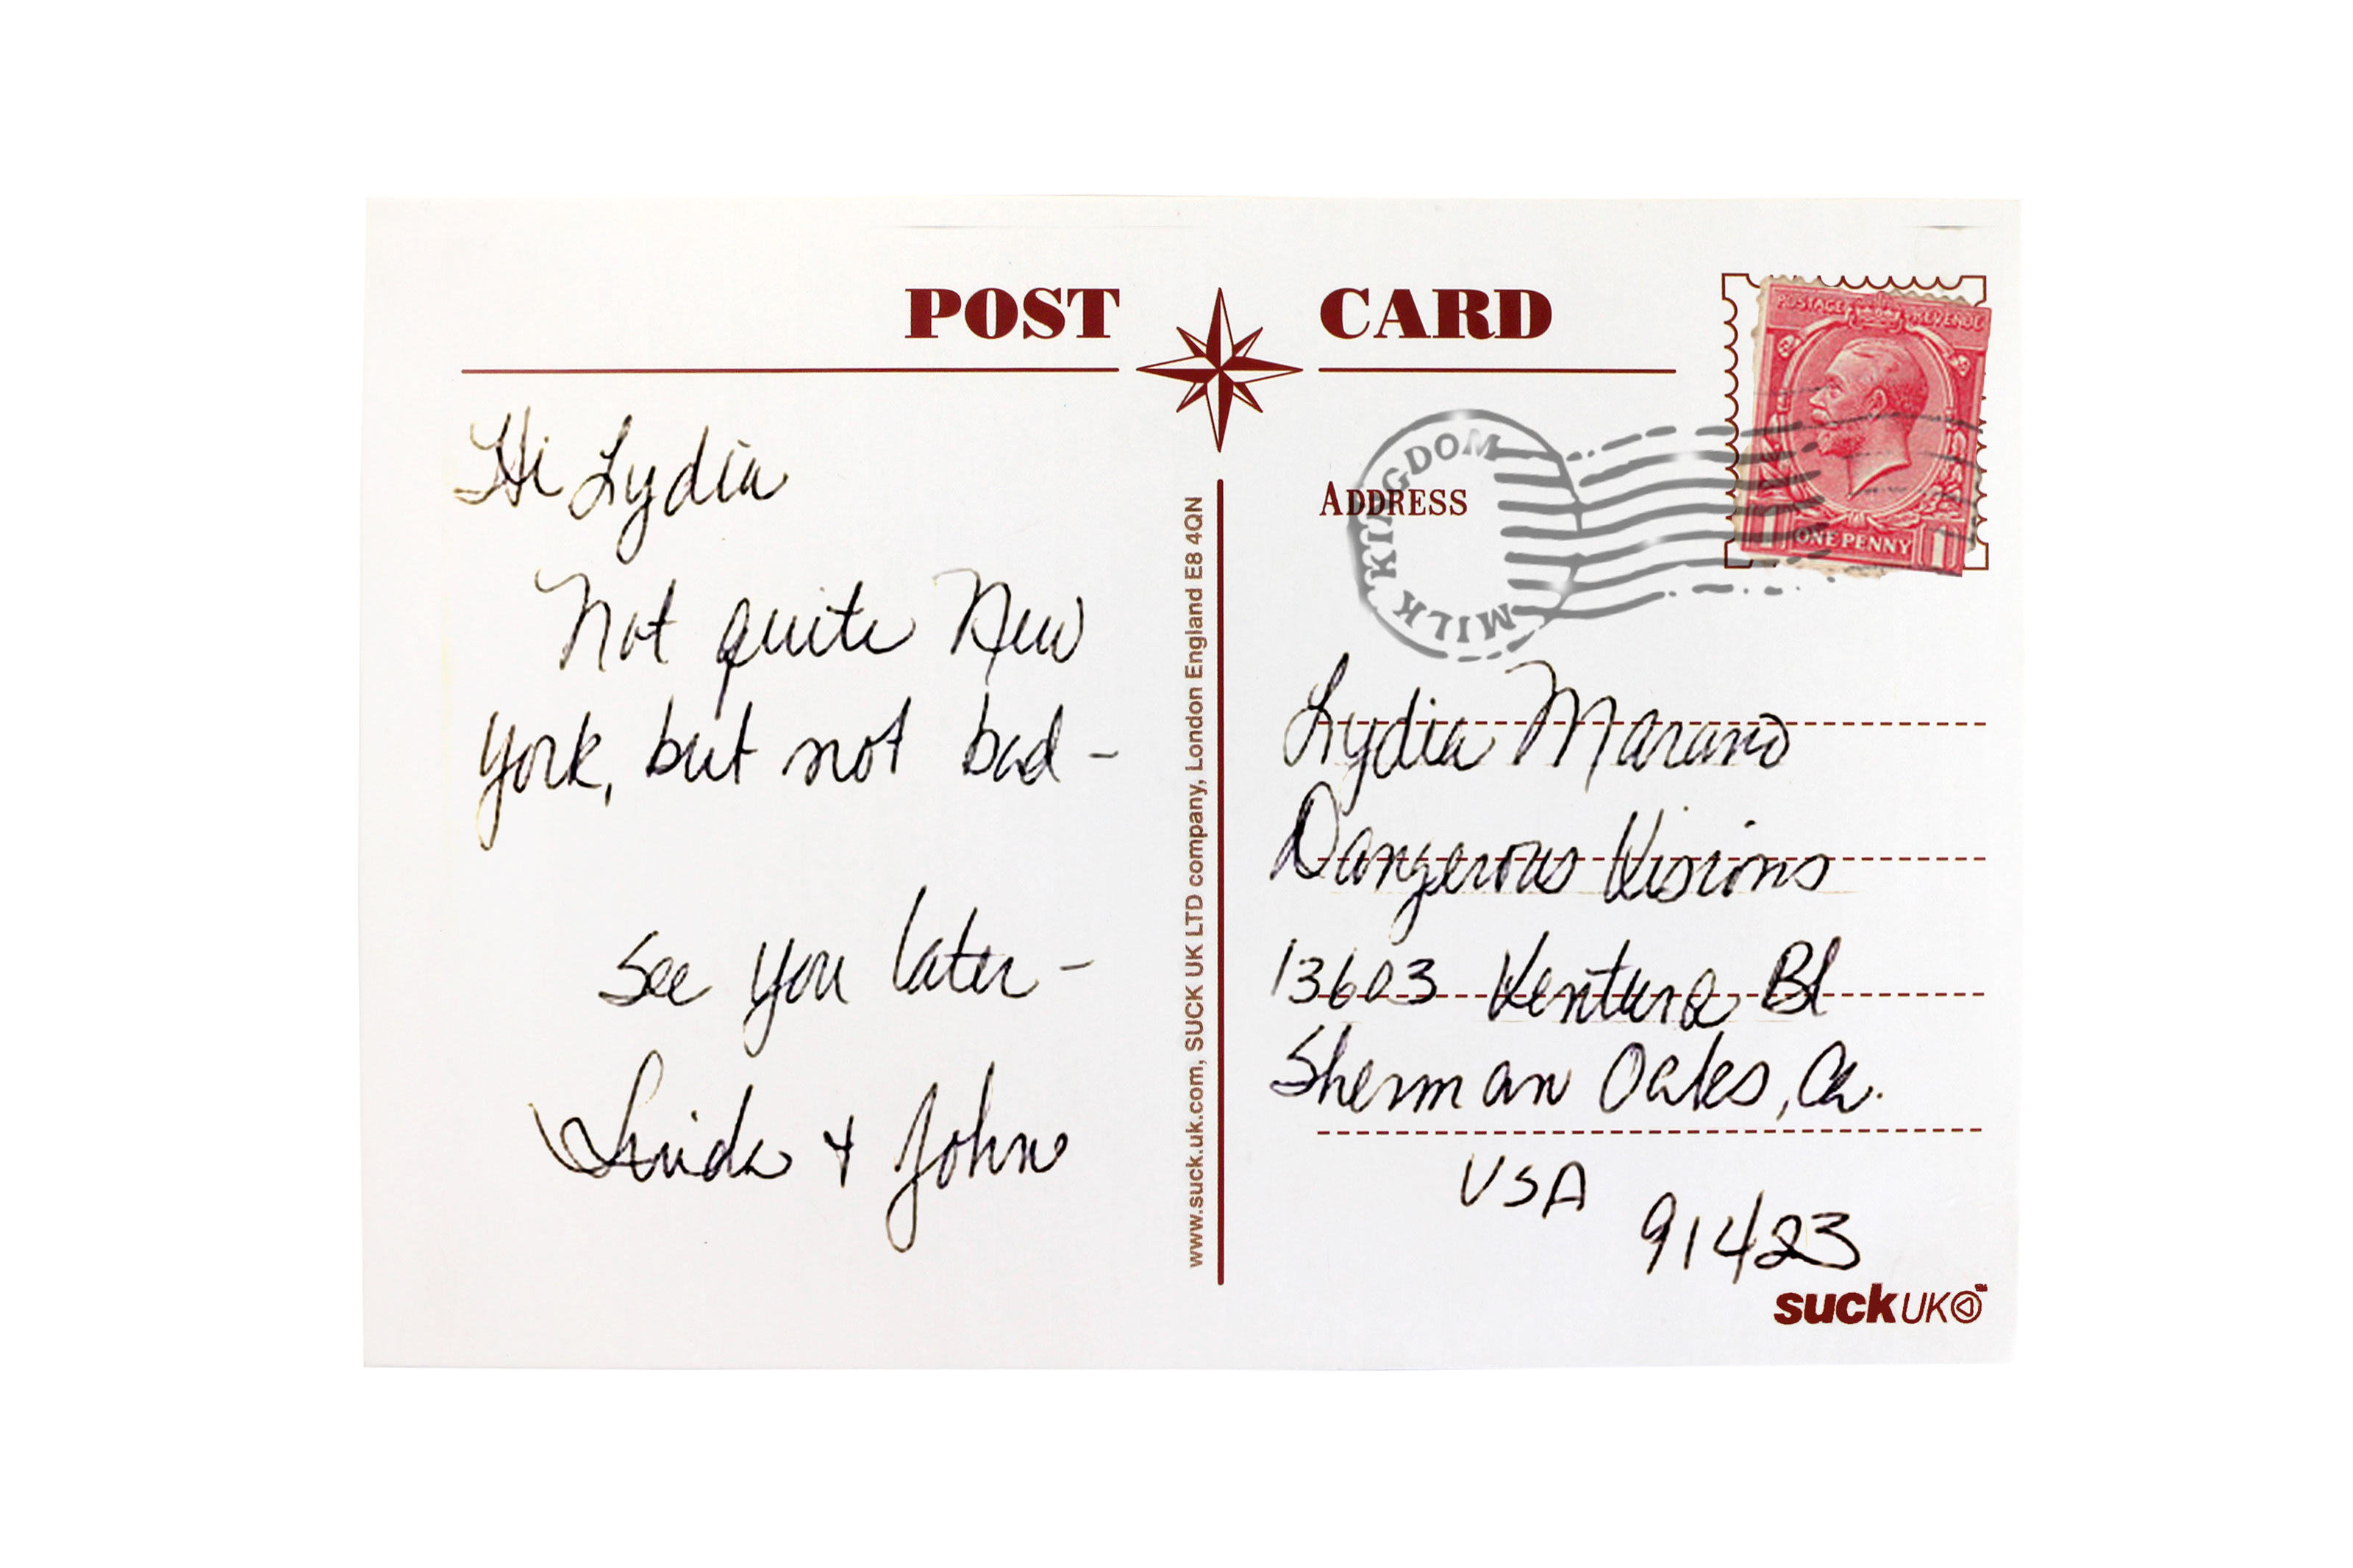 POST CARD
Hi Lydia
Not quite New
York, but not bad -
See you later -
Linda + John
www.suck.uk.com, SUCK UK LTD company, London England E8 4QN
ADDRESS
MILK KINGDOM
POSTAGE REVENUE
ONE PENNY
1 1
Lydia Marano
Dangerous Visions
13603 Ventura Bl
Sherman Oaks, Ca.
USA
91423
suckUK